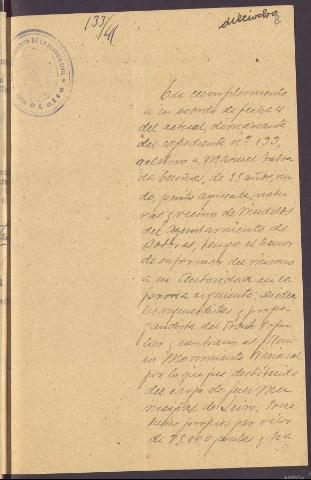 133/41
dieciocho
GUARDIA CIVIL
En cumplimiento
a su escrito de fecha 4
del actual, dimanante
del expediente nº 133,
relativo a Manuel
de 55 años,
do, perito agrícola, natu
ral y vecino de
del Ayuntamiento de
tengo el honor
de informar del mismo
a su Autoridad en la
forma siguiente; de ideas
izquierdistas y propa-
gandista del Frente Popu-
lar y contrario al Glorio-
so Movimiento Nacional
por lo que fue destituido
del cargo de Juez Mu-
nicipal de Leiro. Posee
bienes propios por valor
de 75.000 pesetas y